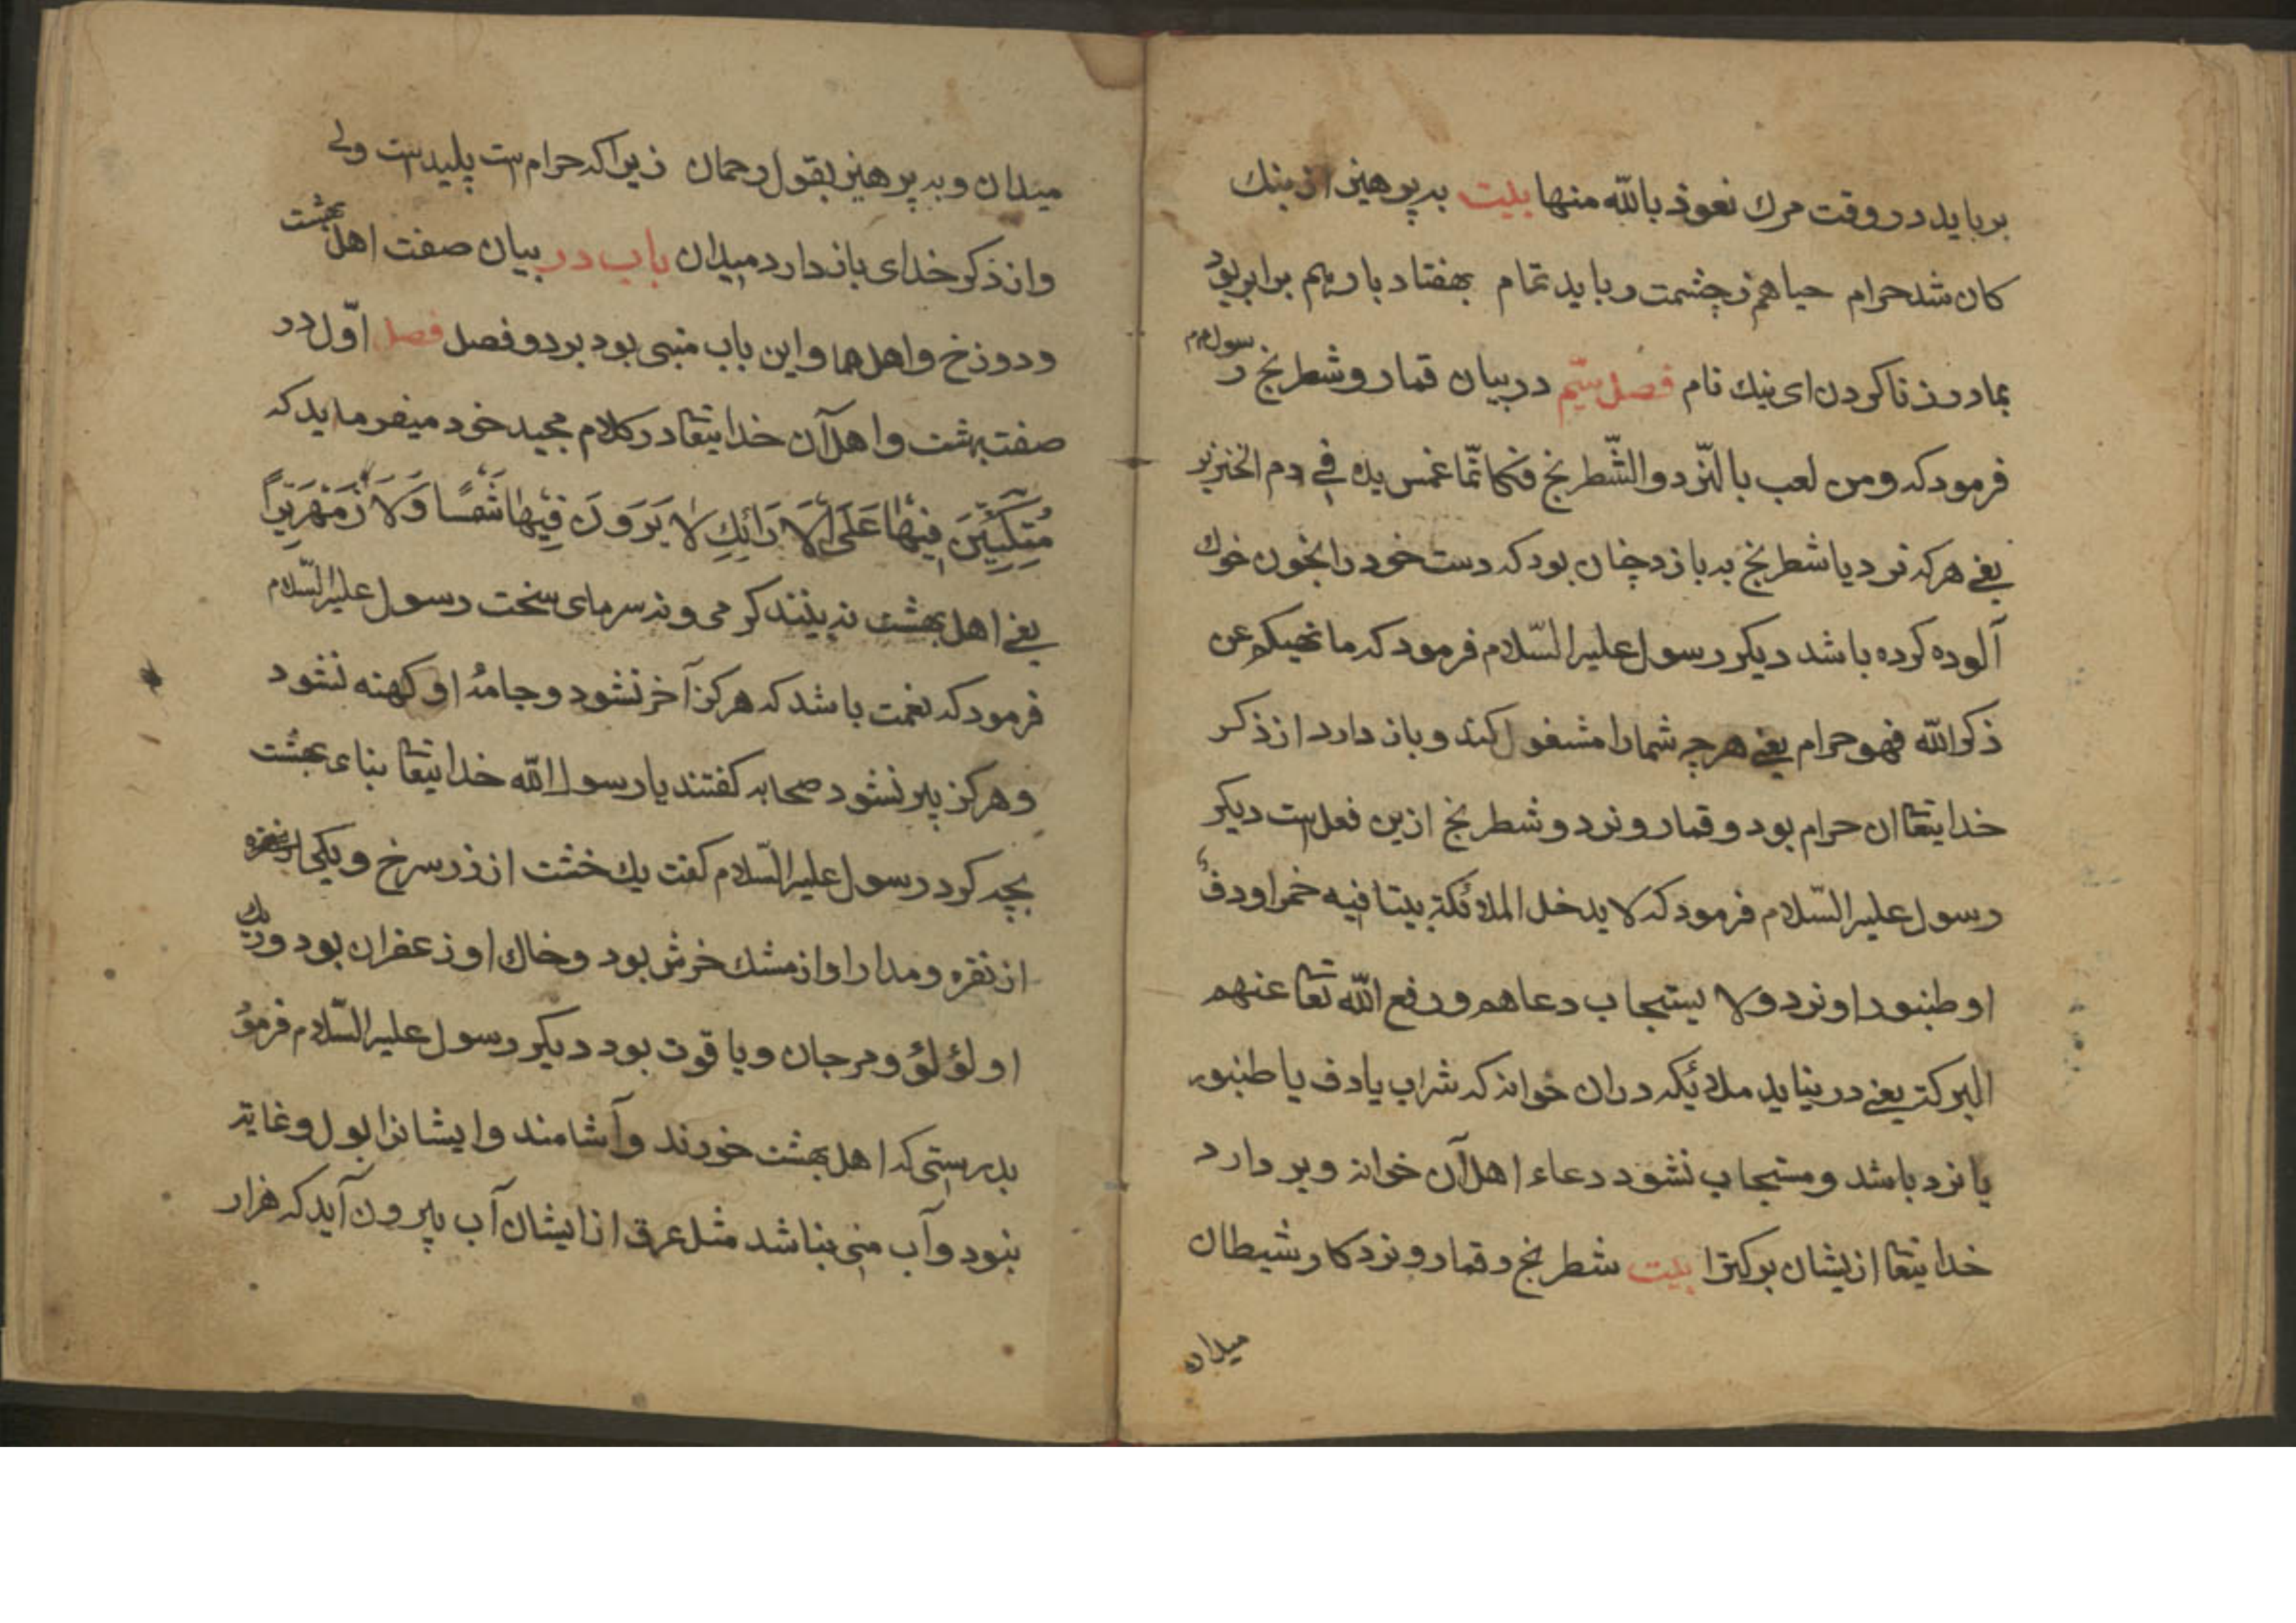 بربايد در وقت مرك نعوذ بالله منها بليت به پرهيز از بنك
كان شد حرام حيا هم زچشمت ربايد تمام بهفتاد بار بهم برابر بود
بمادر زنا كردن اى نيك نام فصل سيّم در بيان قمار و شطرنج رسول م
فرمود كه ومن لعب بالنّرد والشّطرنج فكانّما غمس يده فى دم الخنزير
يعنى هركه نرد يا شطرنج به بازد چنان بود كه دست خود را بخون خوك
آلوده كرده باشد ديكر رسول عليه السّلام فرمود كه ما نهيكم عن
ذكر الله فهو حرام يعنى هر چه شما را مشغول كند و باز دارد از ذكر
خدايتعا ان حرام بود و قمار و نرد و شطرنج ازين فعل است ديكر
رسول عليه السّلام فرمود كه لا يدخل الملائكة بيتا فيه خمر او دف
او طنبور او نرد ولا يستجاب دعاهم ورفع الله تعا عنهم
البركة يعنى در نيايد ملائيكه دران خوانه كه شراب يا دف يا طنبور
يا نرد باشد و مستجاب نشود دعاء اهل آن خوانه و بر دارد
خدايتعا ازيشان بركترا بيت شطرنج و قمار و نرد كار شيطان
ميدان
ميدان و به پرهيز بقول رحمان زيراكه حرام است پليد است ولى
واز ذكر خداى باز دارد ميدان باب در بيان صفت اهل بهشت
و دوزخ و اهلها و اين باب مبنى بود بر دو فصل فصل اوّل در
صفت بهشت و اهل آن خدايتعا در كلام مجيد خود ميفرمايد كه
مُتَّكِئِينَ فِيهَا عَلَى الْاَرَائِكِ لَا يَرَوْنَ فِيهَا شَمْسًا وَلَا زَمْهَرِيرًا
يعنى اهل بهشت نه بينند كرمى و نه سرماى سخت رسول عليه السّلام
فرمود كه نعمت باشد كه هركز آخر نشود و جامهٔ او كهنه نشود
و هركز پير نشود صحابه كفتند يا رسول الله خدايتعا بناء بهشت
بچه كرد رسول عليه السّلام كفت يك خشت از زر سرخ و يكى
از نقره و مدار او از مشك خرش بود و خاك او زعفران بود و ريك
او لؤلؤ و مرجان و ياقوت بود ديكر رسول عليه السّلام فرمود
بدرستى كه اهل بهشت خورند و آشامند و ايشانرا بول و غايه
نبود و آب منى نباشد مثل عرق از ايشان آب بيرون آيد كه هزار